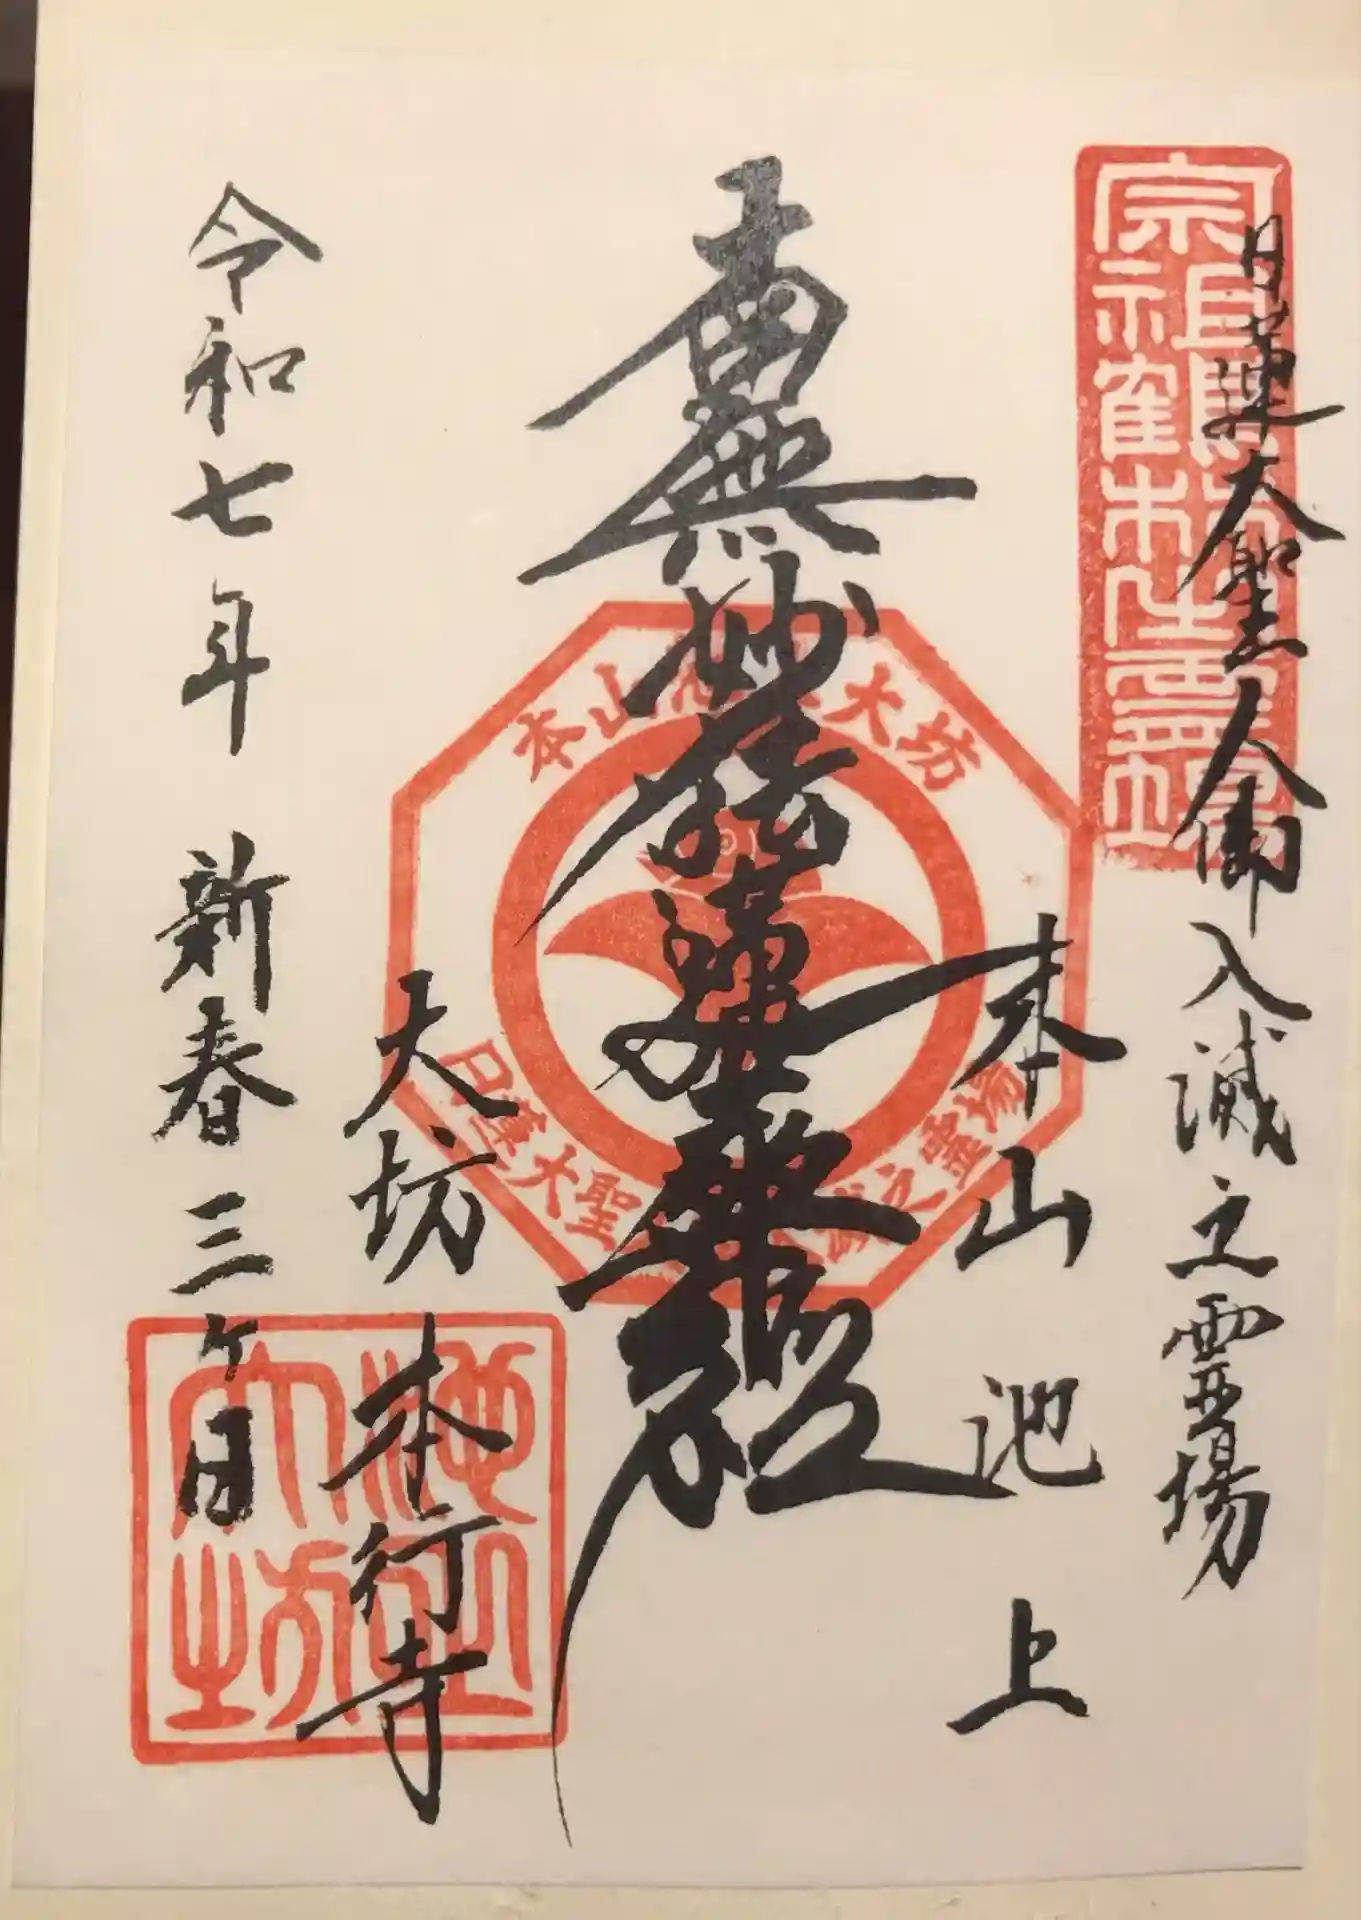 日蓮大聖人御入滅之霊場
宗祖鶴林
本山 池上
南無妙法蓮華経
本山池上大坊
日蓮大聖
之霊場
大坊 本行寺
池上大坊
令和七年 新春 三ヶ日